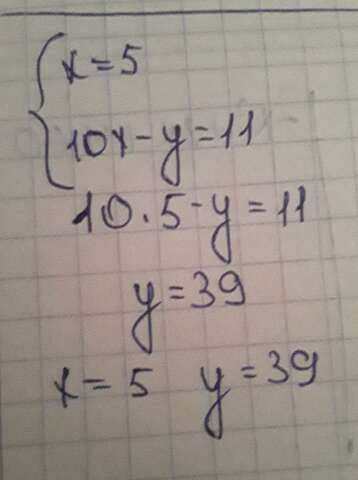 x = 5
10x - y = 11
10 · 5 - y = 11
y = 39
x = 5 y = 39